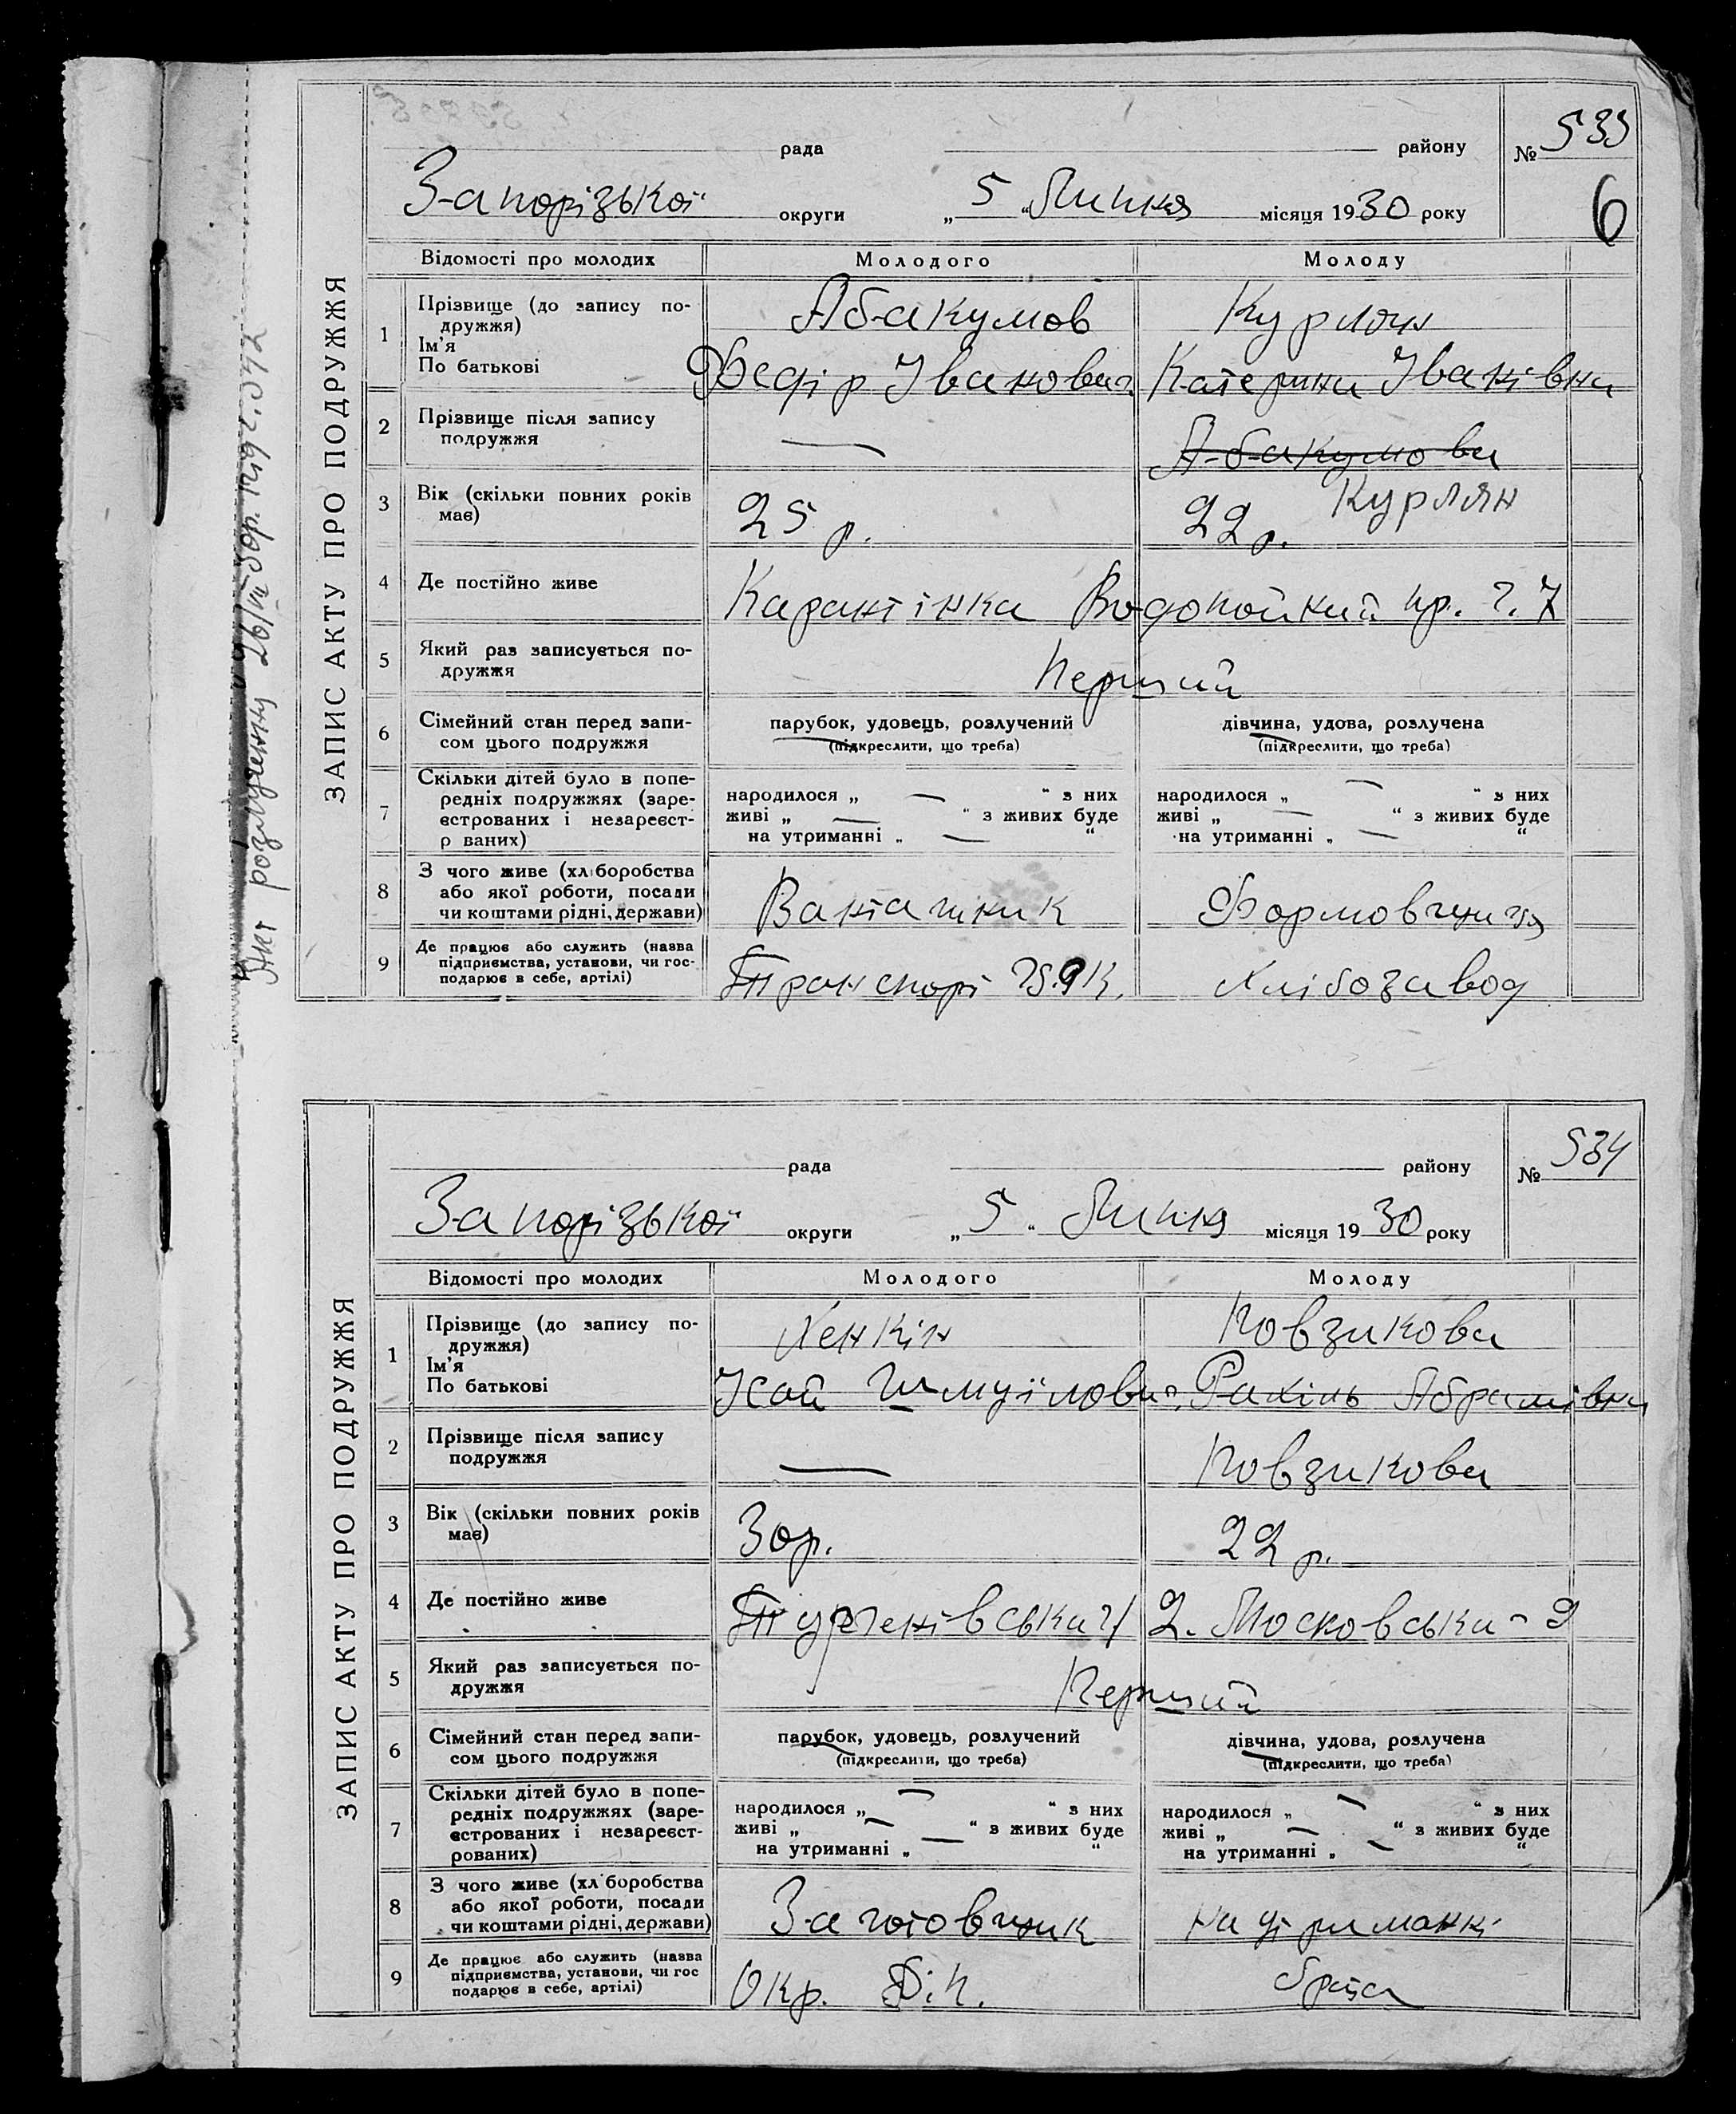 ЗАПИС АКТУ ПРО ПОДРУЖЖЯ
рада району № 533
Запорізької округи „ 5 “ Липня місяця 1930 року
6
Відомості про молодих Молодого Молоду
1 Прізвище (до запису по- Абакумов Курлян
дружжя)
Ім'я
По батькові Федір Іванович Катерина Іванівна
2 Прізвище після запису
подружжя — Абакумова
Курлян
3 Вік (скільки повних років
має) 25 р. 22 р.
4 Де постійно живе Карантінка Водопойний пр. ч. 7
5 Який раз записується по-
дружжя Перший
6 Сімейний стан перед запи- парубок, удовець, розлучений дівчина, удова, розлучена
сом цього подружжя (підкреслити, що треба) (підкреслити, що треба)
7 Скільки дітей було в попе-
редніх подружжях (заре- народилося „ — “ з них народилося „ — “ з них
єстрованих і незареєст- живі „ — “ з живих буде живі „ — “ з живих буде
р ваних) на утриманні „ — “ на утриманні „ — “
8 З чого живе (хл боробства
або якої роботи, посади Вантажник Формовчиця
чи коштами рідні, держави)
9 Де працює або служить (назва
підприємства, установи, чи гос- Транспорт Хлібозавод
подарює в себе, артілі)
Акт розлученну
ЗАПИС АКТУ ПРО ПОДРУЖЖЯ
рада району № 534
Запорізької округи „ 5 “ Липня місяця 1930 року
Відомості про молодих Молодого Молоду
1 Прізвище (до запису по- Хенкін Ковзикова
дружжя)
Ім'я
По батькові Ісай Шмуїлович Рахіль Абрамівна
2 Прізвище після запису
подружжя — Ковзикова
3 Вік (скільки повних років
має) 30р. 22 р.
4 Де постійно живе Тургенівська 2. Московська - 9
5 Який раз записується по-
дружжя Перший
6 Сімейний стан перед запи- парубок, удовець, розлучений дівчина, удова, розлучена
сом цього подружжя (підкреслити, що треба) (підкреслити, що треба)
7 Скільки дітей було в попе-
редніх подружжях (заре- народилося „ — “ з них народилося „ — “ з них
єстрованих і незареєст- живі „ — “ з живих буде живі „ — “ з живих буде
рованих) на утриманні „ — “ на утриманні „ — “
8 З чого живе (хл боробства
або якої роботи, посади Заготовчик на утриманні
чи коштами рідні, держави)
9 Де працює або служить (назва
підприємства, установи, чи гос Окр. брата
подарює в себе, артілі)